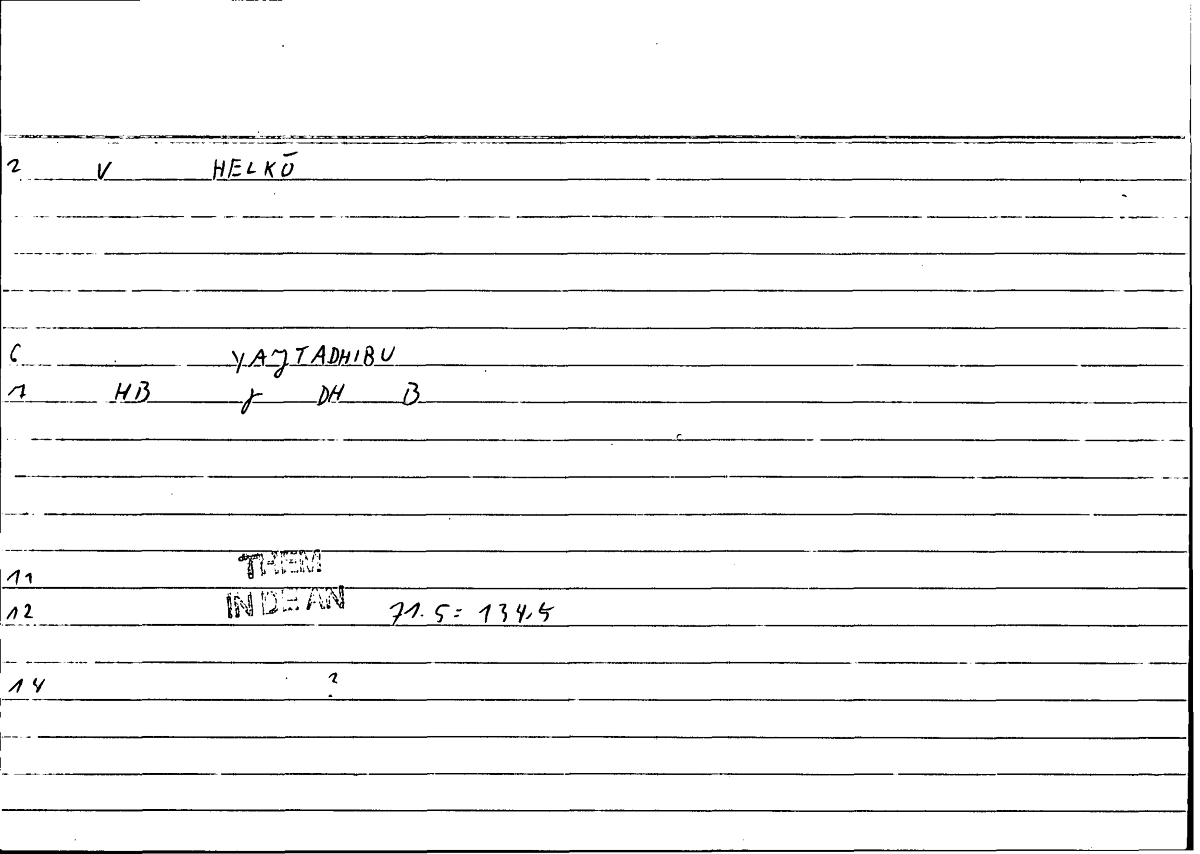 2 V HELKŌ
6 YAJTADHIBU
7 HB J DH B
11 THEM
12 IN DE AN 71.5 = 134,5
14 ?